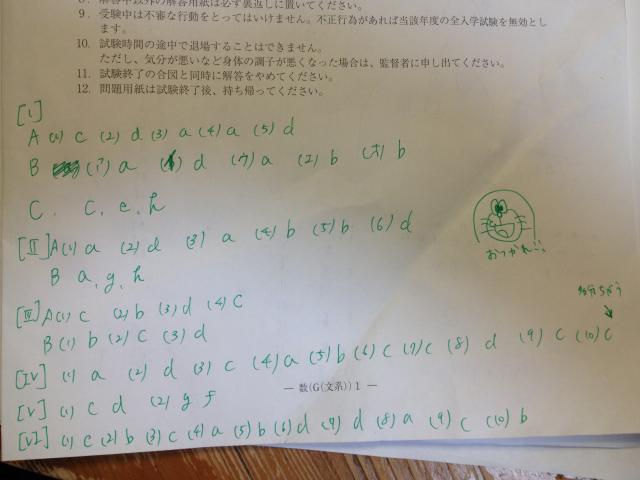 8. 解答中以外の解答用紙は必ず裏返しに置いてください。
9. 受験中は不審な行動をとってはいけません。不正行為があれば当該年度の全入学試験を無効とし
ます。
10. 試験時間の途中で退場することはできません。
ただし、気分が悪いなど身体の調子が悪くなった場合は、監督者に申し出てください。
11. 試験終了の合図と同時に解答をやめてください。
12. 問題用紙は試験終了後、持ち帰ってください。
[I]
A (1) c (2) d (3) a (4) a (5) d
B (ア) a (イ) d (ウ) a (エ) b (オ) b
C. c, e, h
おつかれ〜。
[II] A (1) a (2) d (3) a (4) b (5) b (6) d
B a, g, h
[III] A (1) c (2) b (3) d (4) c
B (1) b (2) c (3) d
多分ちがう
[IV] (1) a (2) d (3) c (4) a (5) b (6) c (7) c (8) d (9) c (10) c
— 数(G(文系)) 1 —
[V] (1) c d (2) g f
[VI] (1) c (2) b (3) c (4) a (5) b (6) d (7) d (8) a (9) c (10) b